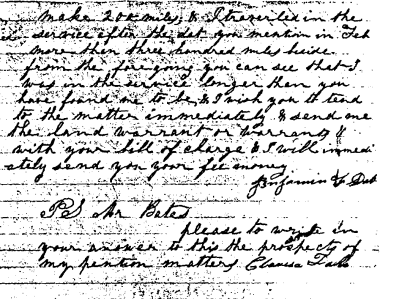 make 200 miles, & I traveled in the
service after the date you mention in Feb
more then three hundred miles beside
from the foregoing you can see that I
was in the service longer then you
have found me to be, & I wish you to tend
to the matter immediately & send me
the land warrant or warrants &
with your bill of charge & I will immedi
ately send you your fee money
Benjamin F
PS Mr Bates
please to write in
your answer to this the prospects of
my pention matters